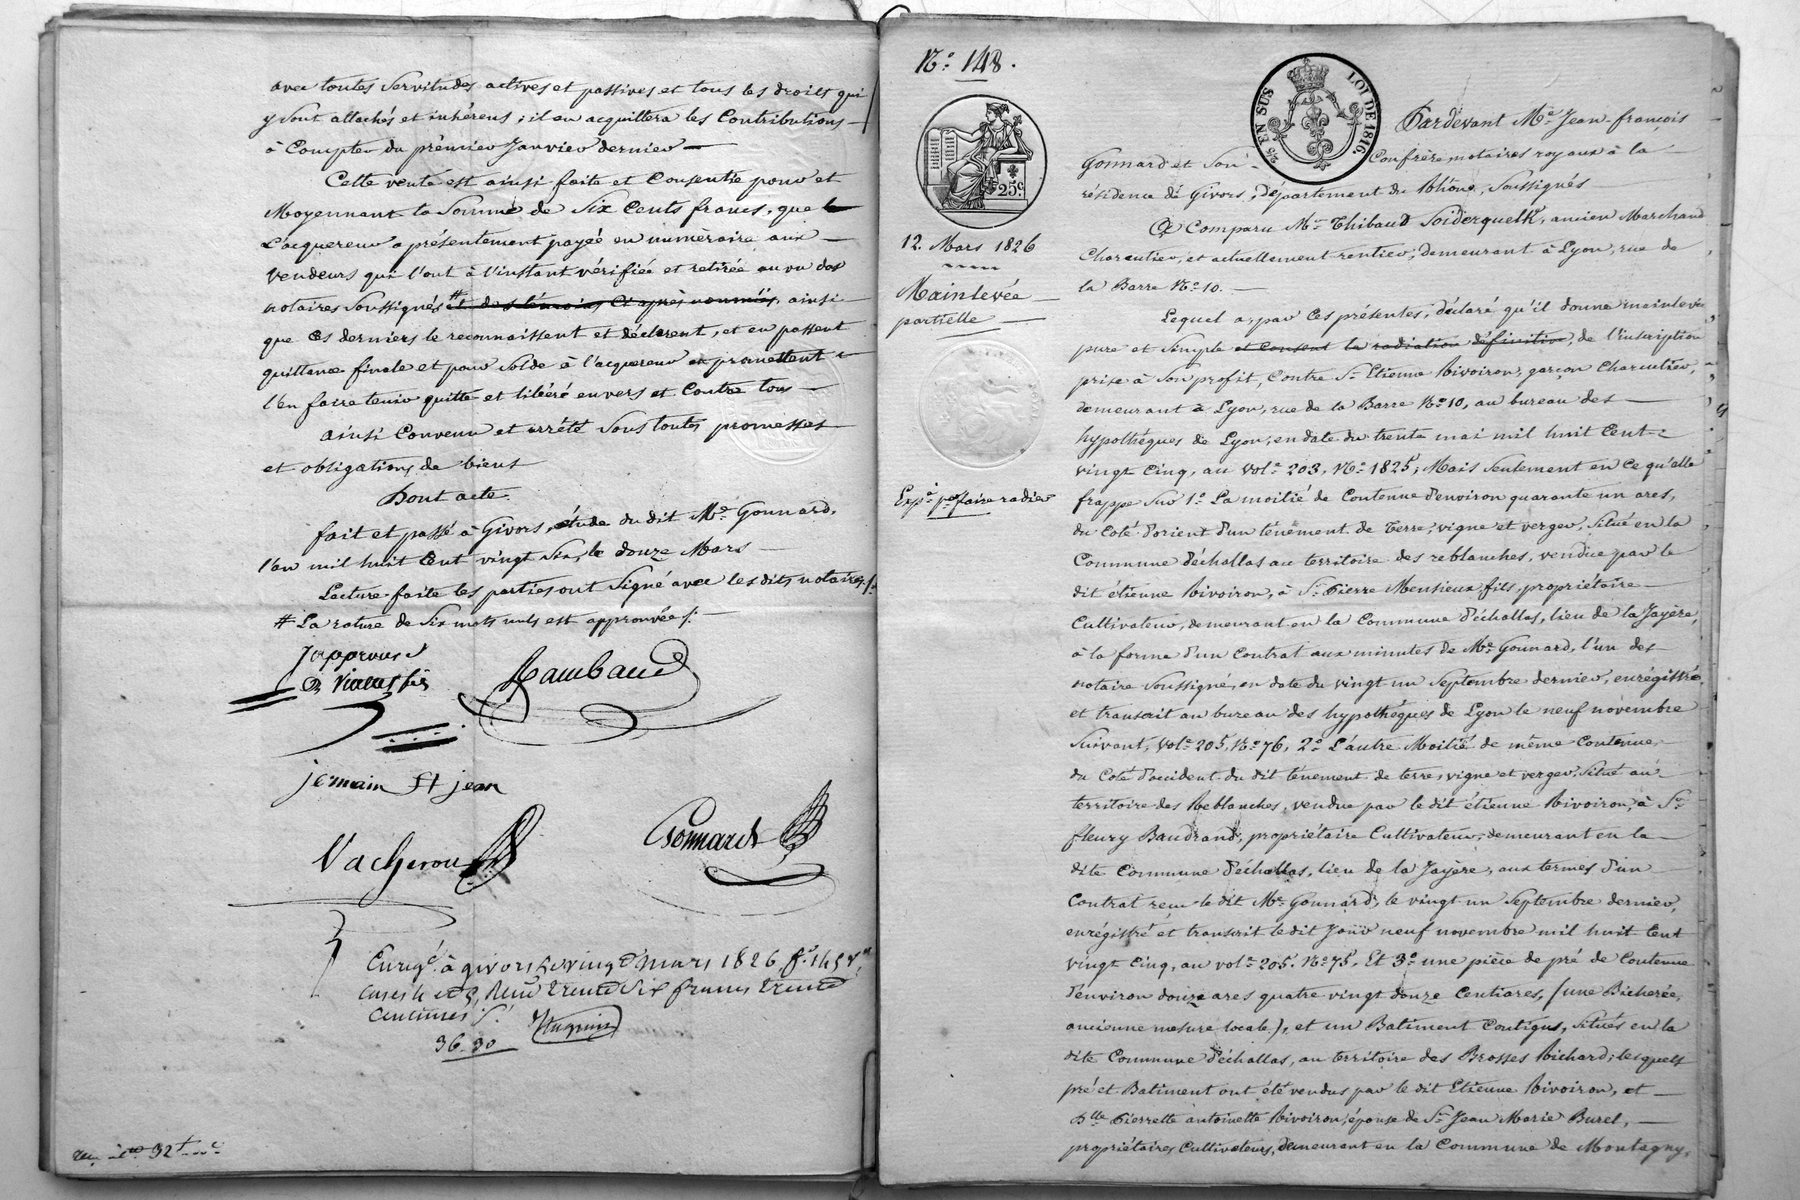 avec toutes servitudes actives et passives et tous les droits qui
y sont attachés et inhérens ; il en acquittera les Contributions
à Compter du premier Janvier dernier
Cette vente est ainsi faite et Consentie pour et
Moyennant la Somme de Six Cents francs, que
l'acquereur a présentement payée en numéraire aux
vendeurs qui l'ont à l'instant vérifiée et retirée au vu des
notaires soussignés # et des témoins ci après nommés, ainsi
que ces derniers le reconnaissent et déclarent, et en passent
quittance finale et pour solde à l'acquereur et promettent
l'en faire tenir quitte et libéré envers et Contre tous
ainsi Convenu et arrêté Sous toutes promesses
et obligations de biens
Dont acte.
fait et passé à Givors, étude du dit Me. Gonnard,
l'an mil huit Cent vingt six, le douze Mars
Lecture faite les parties ont Signé avec les dits notaires ./.
# La rature de Six mots nuls est approuvée ./.
J'approuve
Rambaud
jermain St jean
Vacheron
Gonnard
Enregé. à givors le vingt mars 1826. fo. 145 vo.
cases 4 et 5, Reçu trente Six francs trente
centimes
36-30
No. 148.
25c
25 EN SUS
LOI DE 1816.
12. Mars 1826
Mainlevée
partielle
Expé. pr. faire radier
Pardevant Me. Jean-françois
Gonnard et Son Confrère notaires royaux à la
résidence de Givors, département du Rhône, Soussignés
A Comparu Mr. Thibaud Soiderquelk, ancien Marchand
Charcutier, et actuellement rentier, demeurant à Lyon, rue de
la Barre No. 10.
Lequel a, par ces présentes, déclaré qu'il donne mainlevée
pure et simple et consent la radiation définitive, de l'inscription
prise à Son profit, Contre Sr. Etienne Rivoiron, garçon Charcutier,
demeurant à Lyon, rue de la Barre No. 10, au bureau des
hypothèques de Lyon, en date du trente mai mil huit Cent
vingt Cinq, au vole. 203, No. 1825, Mais Seulement en ce qu'elle
frappe Sur 1o. La moitié de Contenue d'environ quarante un ares,
du Coté d'orient d'un tènement de Terre, vigne et verger, Situé en la
Commune d'échallas au territoire des reblanches, vendue par le
dit étienne Rivoiron, à Sr. Pierre Mensieux fils, propriétaire
Cultivateur, demeurant en la Commune d'échallas, lieu de la Jayère,
à la forme d'un Contrat aux minutes de Me. Gonnard, l'un des
notaire Soussigné, en date du vingt un Septembre dernier, enrégistré
et transcrit au bureau des hypothèques de Lyon le neuf novembre
Suivant, vole. 205, No. 76, 2o. L'autre Moitié de même Contenue,
du Coté d'occident du dit tènement de terre, vigne et verger, Situé au
territoire des Reblanches, vendue par le dit étienne Rivoiron, à Sr.
fleury Baudrand, propriétaire Cultivateur, demeurant en la
dite Commune d'échallas, lieu de la Jayère, aux termes d'un
Contrat reçu le dit Me. Gonnard, le vingt un Septembre dernier,
enrégistré et transcrit le dit Jour neuf novembre mil huit Cent
vingt Cinq, au vole. 205. No. 75. Et 3o. une pièce de pré de Contenue
d'environ douze ares quatre vingt douze Centiares, (une Bicherée,
ancienne mesure locale), et un Batiment Contigus, Situés en la
dite Commune d'échallas, au territoire des Brosses Richard, lesquels
pré et Batiment ont été vendus par le dit Etienne Rivoiron, et
Dlle. Pierrette antoinette Rivoiron, épouse de Sr. Jean Marie Burel,
propriétaires Cultivateurs, demeurant en la Commune de Montagny,